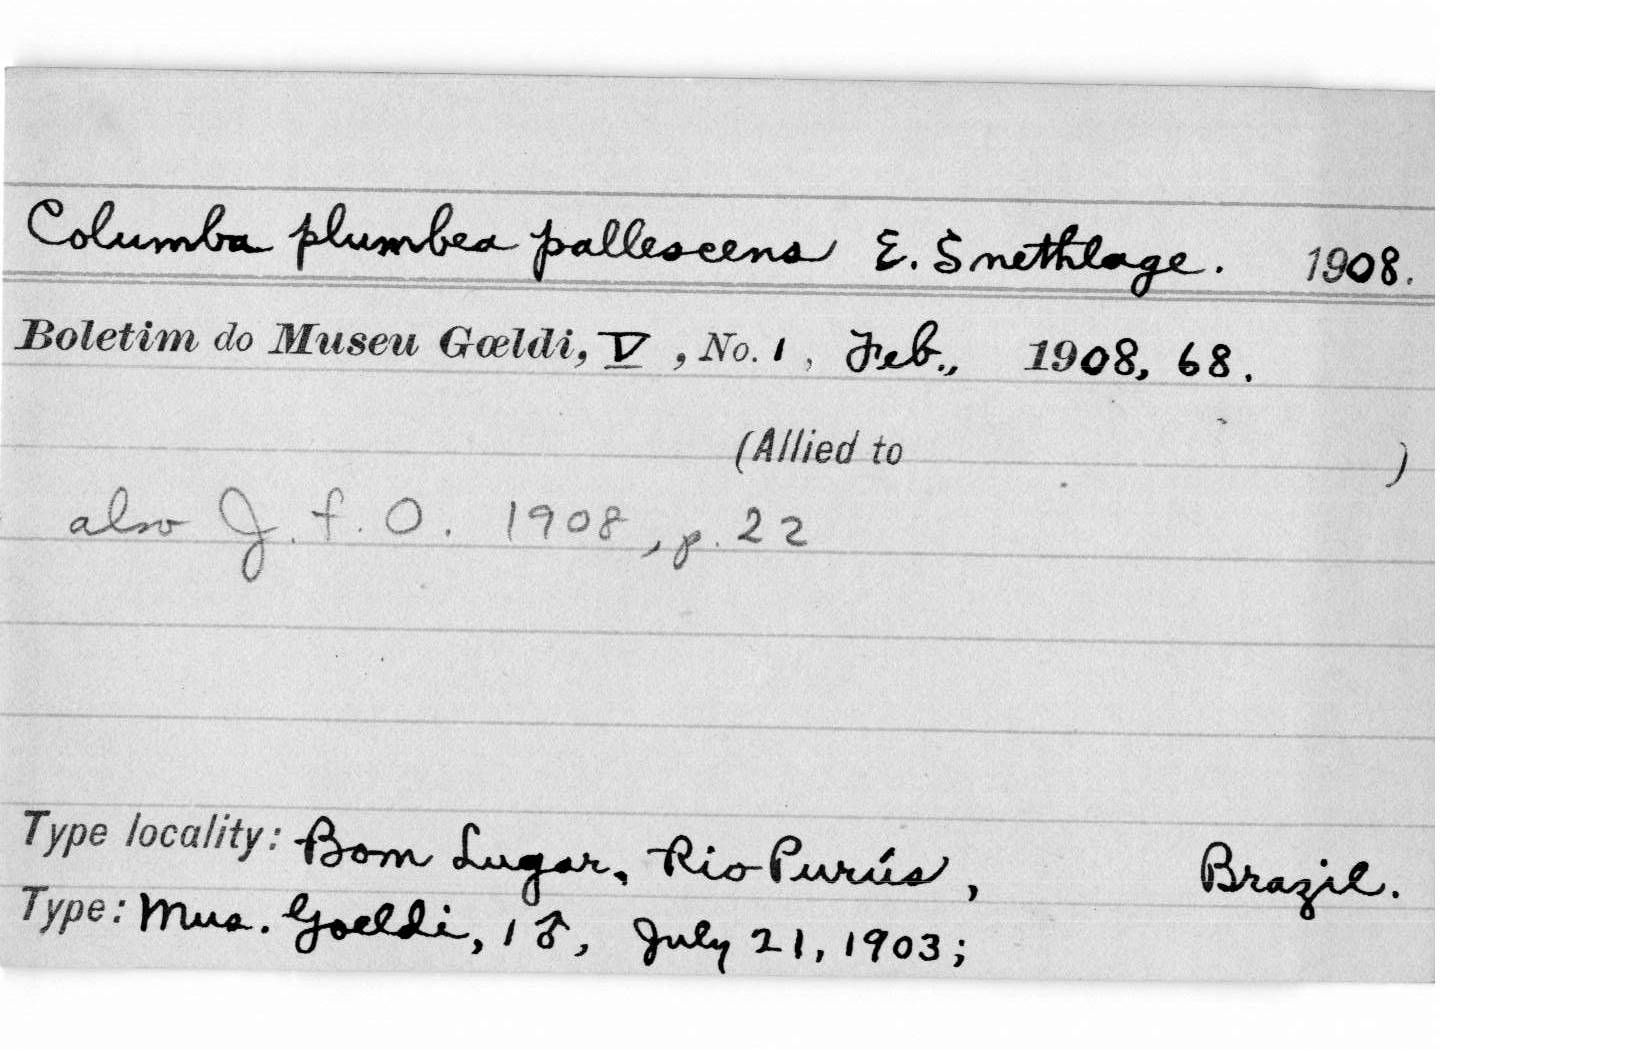 Columba plumbea pallescens E. Snethlage. 1908.
Boletim do Museu Gœldi, V, No. 1, Feb., 1908, 68.
(Allied to )
also J. f. O. 1908, p. 22
Type locality: Bom Lugar, Rio Purús, Brazil.
Type: Mus. Goeldi, 1 ♂, July 21, 1903;